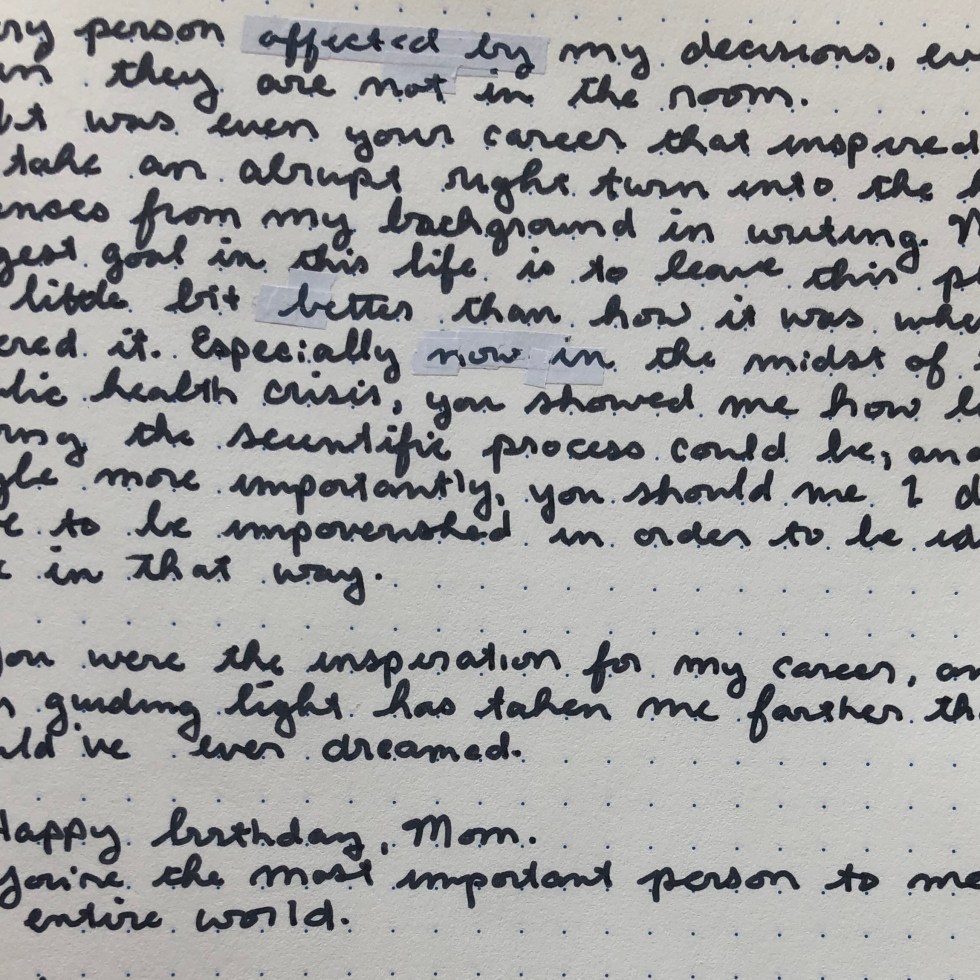 ry person affected by my decisions, ev
n they are not in the room.
It was even your career that inspired
take an abrupt right turn into the
ences from my background in writing. M
gest goal in this life is to leave this p
little bit better than how it was whe
ered it. Especially now in the midst of
lic health crisis, you showed me how
ring the scientific process could be, and
more importantly, you should me I d
e to be impoverished in order to be
in that way.
You were the inspiration for my career, an
r guiding light has taken me farther th
uld've ever dreamed.
Happy birthday, Mom.
You're the most important person to me
entire world.